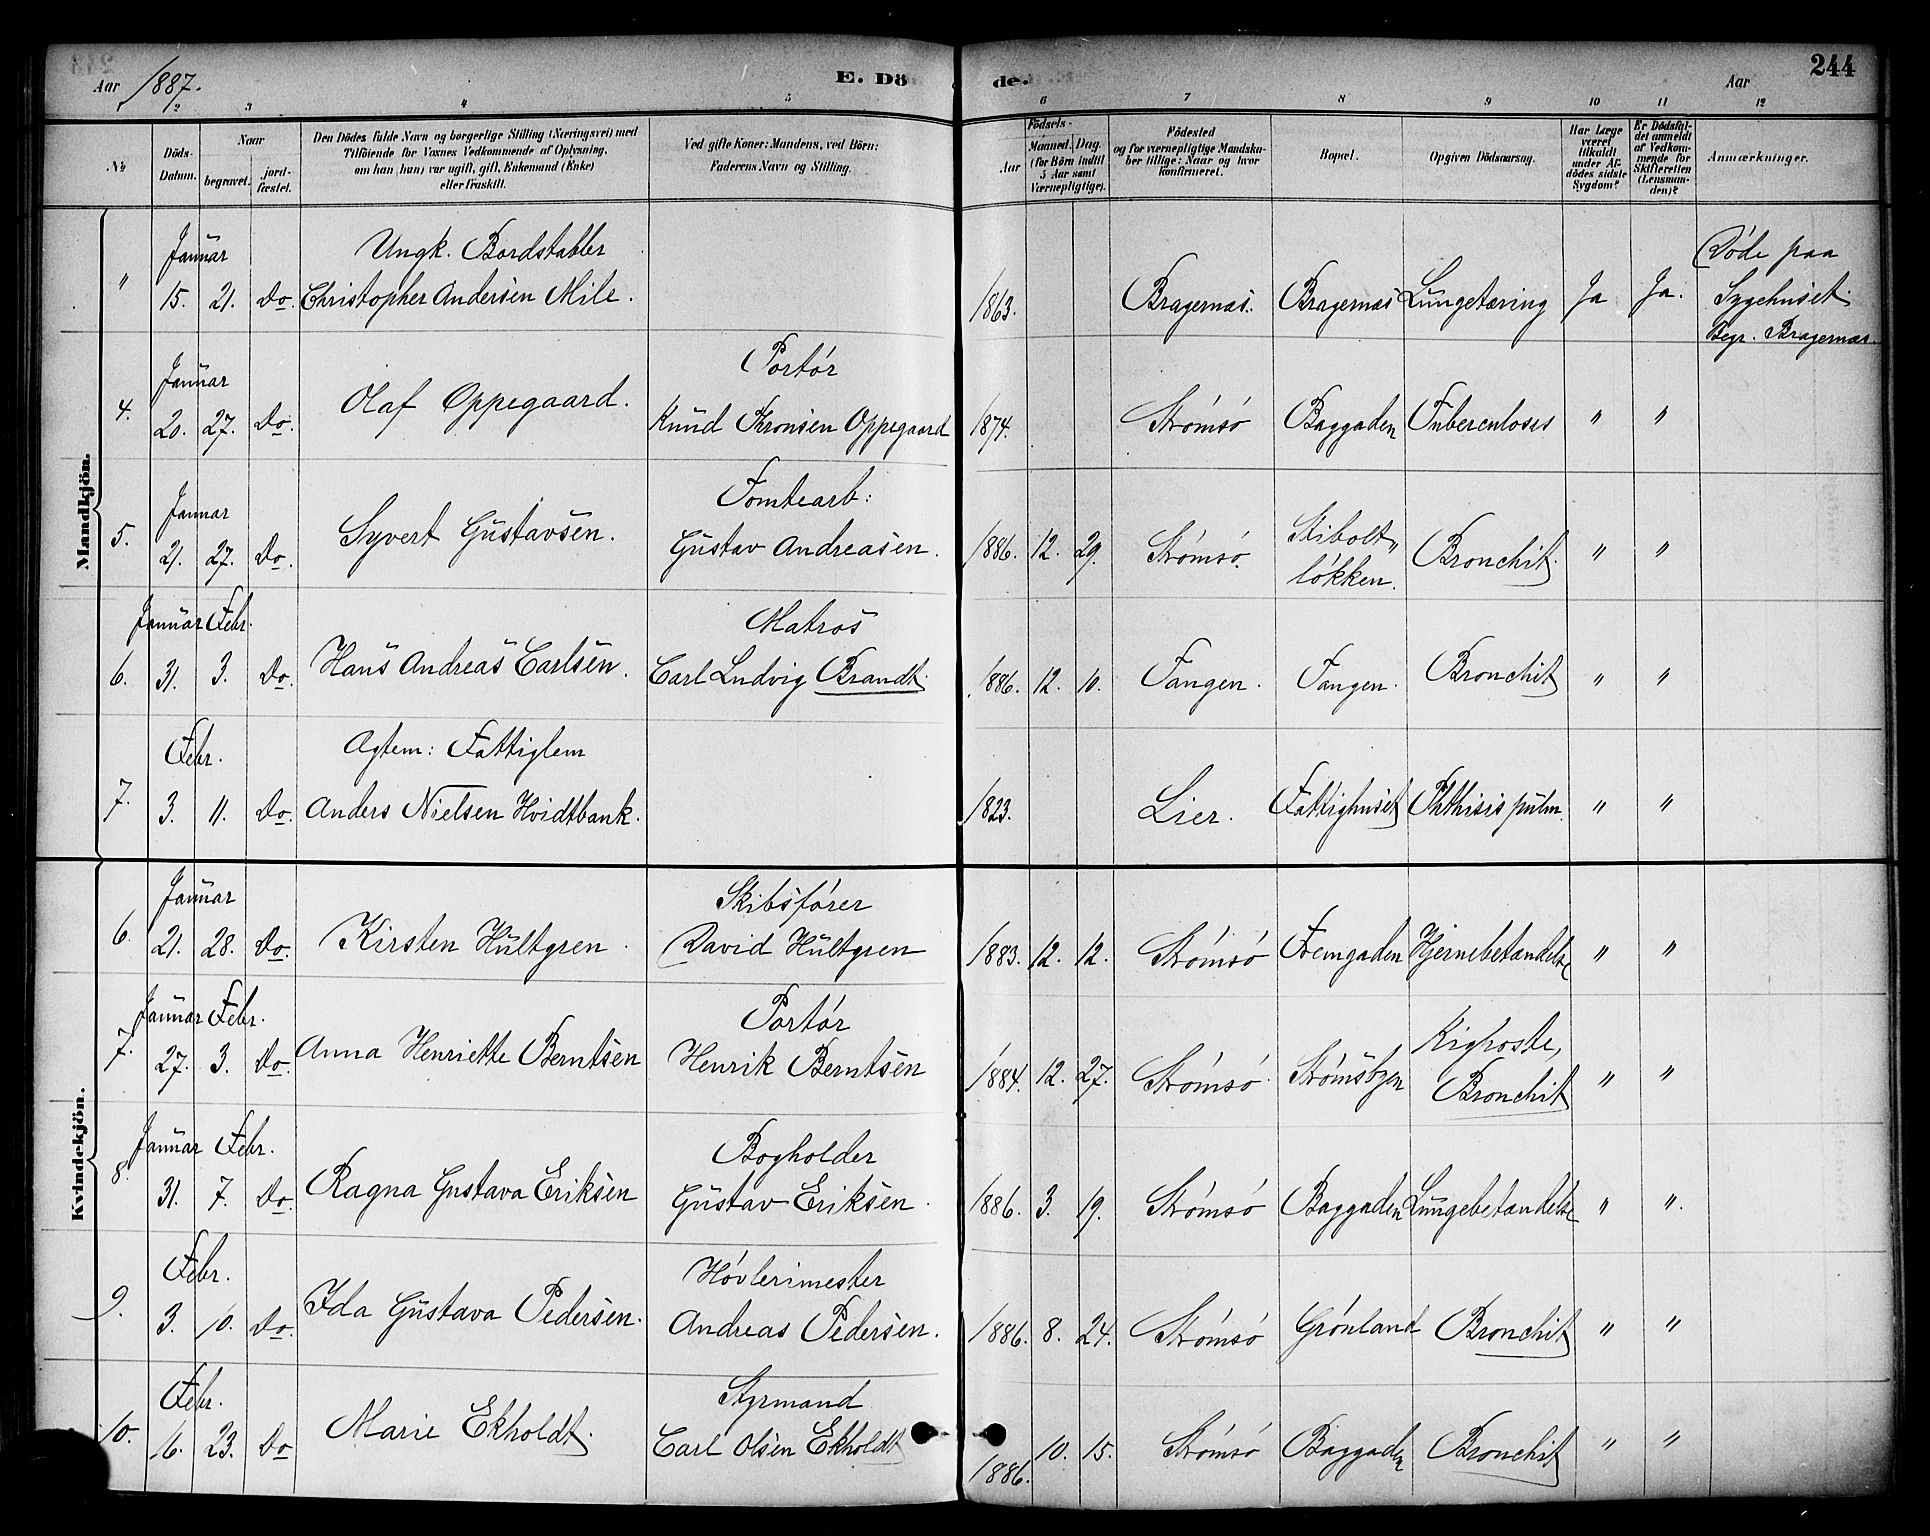 Aar 1887. E. Dö de. Aar 244
2 3 4 5 6 7 8 9 10 11 12
№
Döds-Datum.
Naar
begravet.
jordfæstet.
Den Dödes fulde Navn og borgerlige Stilling (Næringsvei) med
Tilföiende for Voxnes Vedkommende af Oplysning,
om han (hun) var ugift, gift, Enkemand (Enke)
eller fraskilt.
Ved gifte Koner: Mandens, ved Börn:
Faderens Navn og Stilling.
Födsels-
Aar
Maaned. Dag.
(for Börn indtil
5 Aar samt
Værnepligtige).
Födested
og for værnepligtige Mandskaber tillige: Naar og hvor
konfirmeret.
Bopæl.
Opgiven Dödsaarsag.
Har Læge
været
tilkaldt
under Afdödes sidste
Sygdom?
Er Dödsfaldet anmeldt
af Vedkommende for
Skifteretten
(Lensmanden)?
Anmærkninger.
Mandkjön.
Januar Ungk. Bordstabler Döde paa
" 15. 21. Do. Christopher Andersen Mile. 1863. Bragernæs. Bragernæs Lungetæring Ja Ja. Sygehuset.
Begr. Bragernæs.
Januar Portör
4. 20. 27. Do. Olaf Oppegaard. Knud Thronsen Oppegaard 1874. Strömsö Baggaden Tuberculosis " "
Januar Tomtearb:
5. 21. 27. Do. Syvert Gustavsen. Gustav Andreasen. 1886. 12. 29. Strömsö. Skibolt„ Bronchit. " "
lökken.
Januar Febr. Matros
6. 31. 3. Do. Hans Andreas Carlsen. Carl Ludvig Brandt. 1886. 12. 10. Tangen. Tangen. Bronchit " "
Febr. Agtem: Fattiglem
7. 3. 11. Do. Anders Nielsen Hvidtbank. 1823. Lier. Fattighuset Phthisis pulm. " "
Kvindekjön.
Januar Skibsförer
6. 21. 28. Do. Kirsten Hultgren. David Hultgren 1883. 12. 12. Strömsö Fremgaden Hjernebetændelse " "
Januar Febr. Portör Kighoste,
7. 27. 3. Do. Anna Henriette Berntsen Henrik Berntsen 1884. 12. 27. Strömsö. Strömsbyen Bronchit " "
Januar Febr. Bogholder
8. 31. 7. Do. Ragna Gustava Eriksen Gustav Eriksen. 1886. 3. 19. Strömsö Baggaden Lungebetændelse " ".
Febr. Hövlerimester
9. 3. 10. Do. Ida Gustava Pedersen. Andreas Pedersen. 1886. 8. 24. Strömsö Grönland Bronchit " "
Febr. Styrmand
10. 16. 23. Do Marie Ekholdt. Carl Olsen Ekholdt 1886. 10. 15. Strömsö Baggaden Bronchit " "